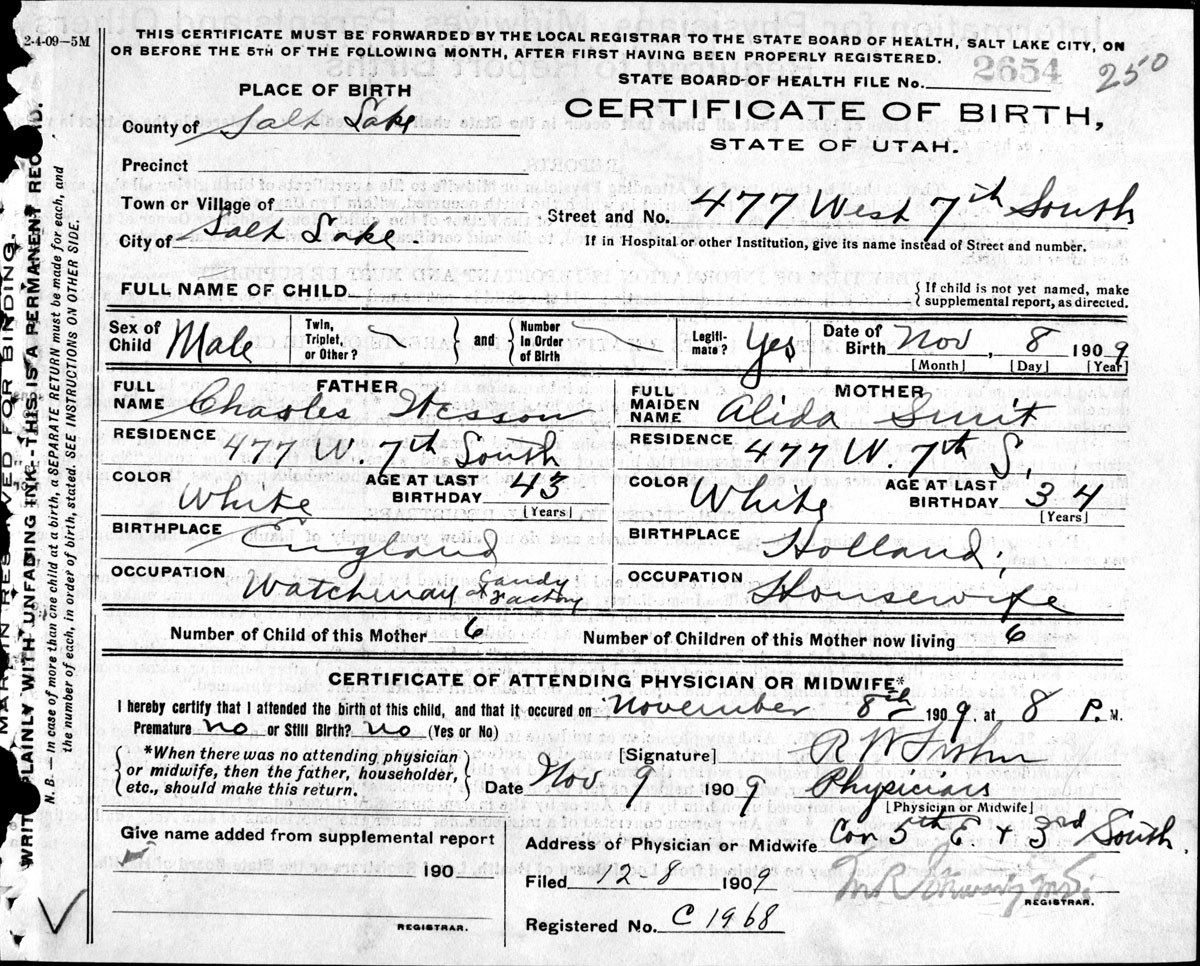 2-4-09—5M
THIS CERTIFICATE MUST BE FORWARDED BY THE LOCAL REGISTRAR TO THE STATE BOARD OF HEALTH, SALT LAKE CITY, ON
OR BEFORE THE 5TH OF THE FOLLOWING MONTH, AFTER FIRST HAVING BEEN PROPERLY REGISTERED.
2654 250
STATE BOARD OF HEALTH FILE No.
PLACE OF BIRTH
CERTIFICATE OF BIRTH,
STATE OF UTAH.
County of Salt Lake
Precinct
Town or Village of
Street and No. 477 West 7th South
City of Salt Lake.
If in Hospital or other Institution, give its name instead of Street and number.
FULL NAME OF CHILD
{ If child is not yet named, make
supplemental report, as directed.
Sex of Child Male
Twin, Triplet, or Other? } and { Number In Order of Birth
Legiti-mate? Yes
Date of Birth Nov, 8 1909
[Month] [Day] [Year]
FATHER
FULL NAME Charles Wesson
RESIDENCE 477 W. 7th South
COLOR White AGE AT LAST BIRTHDAY 43
[Years]
BIRTHPLACE England
OCCUPATION Watchman at Candy Factory
MOTHER
FULL MAIDEN NAME Alida Smit
RESIDENCE 477 W. 7th S.
COLOR White AGE AT LAST BIRTHDAY 34
[Years]
BIRTHPLACE Holland;
OCCUPATION Housewife
Number of Child of this Mother 6 Number of Children of this Mother now living 6
CERTIFICATE OF ATTENDING PHYSICIAN OR MIDWIFE*
I hereby certify that I attended the birth of this child, and that it occured on November 8th 1909, at 8 P. M.
Premature no or Still Birth? no (Yes or No)
{ *When there was no attending physician
or midwife, then the father, householder,
etc., should make this return. }
[Signature] R W
Date Nov 9 1909 Physician
[Physician or Midwife]
Give name added from supplemental report
190
REGISTRAR.
Address of Physician or Midwife Cor 5th E + 3rd South.
Filed 12-8 1909
REGISTRAR.
Registered No. C 1968
MARGIN RESERVED FOR BINDING.
WRITE PLAINLY WITH UNFADING INK.-THIS IS A PERMANENT RECORD.
N. B.—In case of more than one child at a birth, a SEPARATE RETURN must be made for each, and
the number of each, in order of birth, stated. SEE INSTRUCTIONS ON OTHER SIDE.